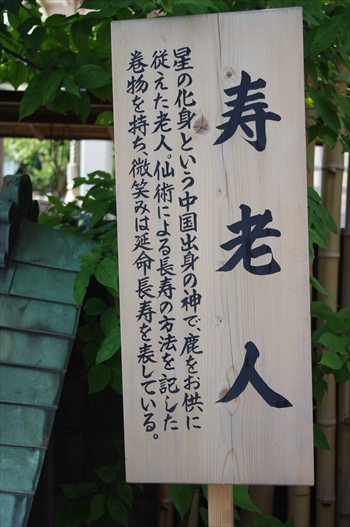 寿老人
星の化身という中国出身の神で、鹿をお供に
従えた老人。仙術による長寿の方法を記した
巻物を持ち、微笑みは延命長寿を表している。